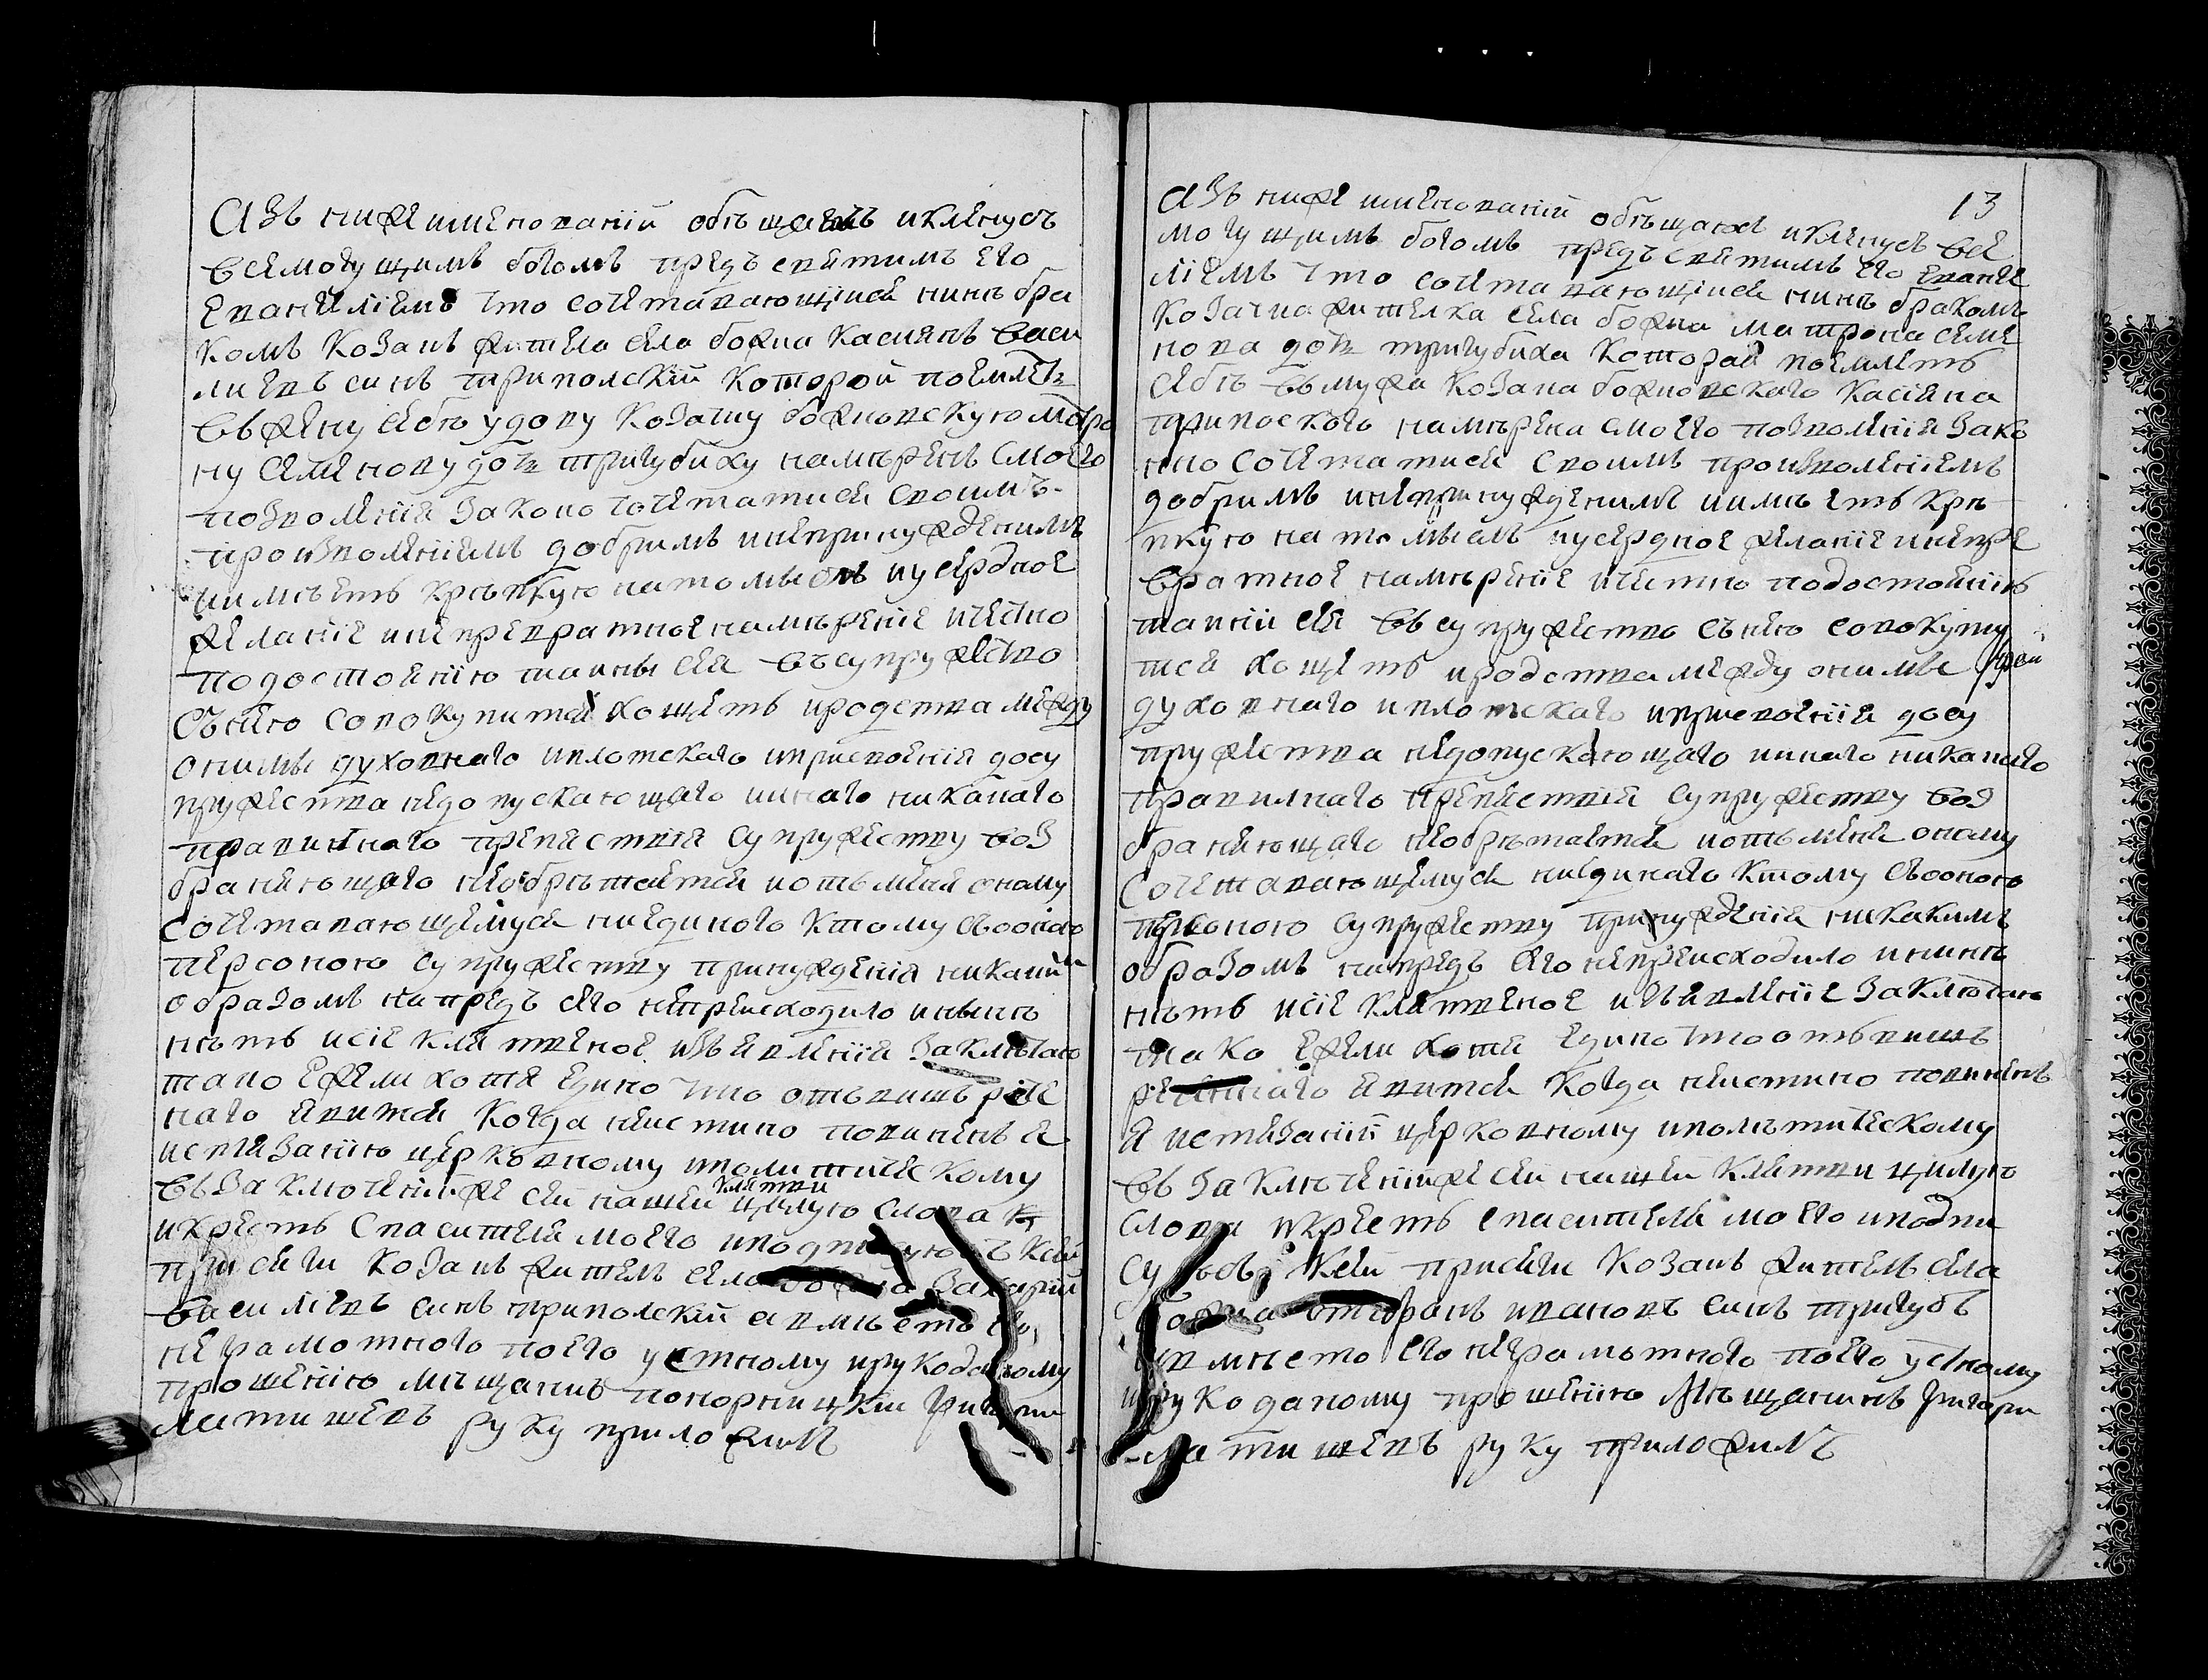 Азъ нижеименованїй обѣщаюсь и кленусъ
всемогущимъ богомъ предъ святимъ его
евангелїемъ что сочетавающїися нинѣ бра
комъ козакъ жителъ села божка касиянъ васи
лиевъ синъ триполский которой поемлетъ
въ жену себѣ удову козачку божковскую матро
ну семенову дочь тригубиху намѣренъ с моего
позволенїя законо сочетатися своимъ
произволенїемъ добримъ и непринужденимъ
и имѣетъ крѣпкую на то мысль и усердное
желанїе и непревратное намѣренїе и честно
по достоянїю тайны сея въ супружество
съ нею совокупитися хощетъ и родства между
оними духовнаго и плотскаго и присвоенїя до су
пружества недопускающаго и инаго никакаго
правилнаго препяствия супружеству воз
браняющаго не обрѣтается и отъ мене оному
сочетавающемуся ни единого к тому съ оною
персоною супружеству принужденїя никакимъ
образомъ напредъ сего не происходило и нынѣ
нѣтъ и сїе клятвеное изъявленїя заключаю
тако ежели хотя едино что отъ вишъ рече
наго явится когда неистино повиненъ я
истязанїю церковному и политическому
въ заключенїи же сей нашей клятви цѣлую слова
и крестъ спасителя моего и подписуюсь к сей
присяги козакъ жителъ села божка Захарїй
василїевъ синъ триполский а вмѣсто его
неграмотного по его устному и рукоданому
прошенїю мѣщанинъ понорницкїй Григорий
Матишевъ руку приложилъ
13
Азъ нижеименованїй обѣщаюся и кленусъ все
могущимъ богомъ предъ святимъ его еванге
лїемъ что сочетавающїися нинѣ бракомъ
козачка жителка села божка матрона семе
нова дочь тригубиха которая поемлетъ
себѣ въ мужа козака божковского касїяна
трипоского намѣрена с моего позволенїя зако
нно сочетатися своимъ произволенїемъ
добримъ и непринужденимъ и имѣетъ крѣ
пкую на то мысль и усердное желанїе и непре
вратное намѣренїе и честно по достоянїю
тайнїи сея въ супружество съ нею совокупи
тися хощетъ и родства между оними
духовнаго и плотскаго и присвоенїя до су
пружества недопускающаго и инаго никакаго
правилнаго препяствїя супружеству воз
браняющаго не обрѣтается и отъ мене оному
сочетавающемуся ни единаго к тому съ оною
персоною супружеству принужденїя никакимъ
образомъ напредъ сего не преисходило и нинѣ
нѣтъ и сїе клятвеное изъявленїе заключаю
тако ежели хотя едино что отъ вишъ
реченнаго явится когда неистино повиненъ
я истязанїй церковному и политическому
въ заключенїи же сей нашей клятви цилую
слова и крестъ спасителя моего и подпи
суюсь к сей присяги козакъ жителъ села
божка ивановъ синъ тригубъ
а вмѣсто его неграмотного по его устному
и рукоданому прошенїю Мѣщанинъ Григори
Матишевъ руку приложилъ